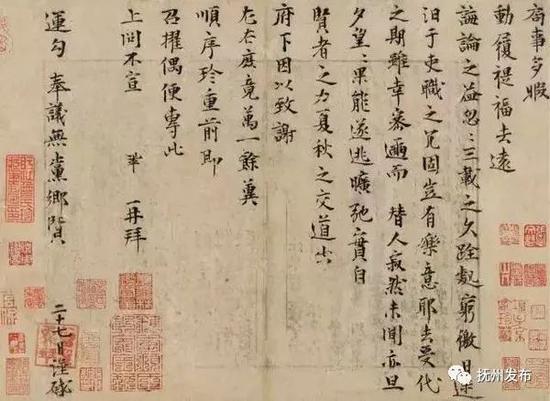 局事多暇
動履禔福去遠
誨論之益忽忽三載之久跧處窮徼日迷
汨于吏職之冗固豈有樂意耶去受代
之期雖幸密邇而替人寂然未聞亦旦
夕望望果能遂逃曠弛實自
賢者之力夏秋之交道出
府下因以致謝
左右庶竟萬一餘冀
順序珍重前即
召擢偶便專此
上問不宣 鞏再拜
運勾奉議無黨鄉賢
二十七日謹啟
抚州发布